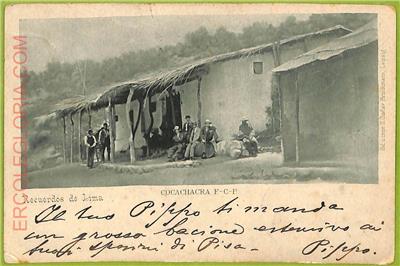 ERCOLEGLORIA.COM
COCACHACRA F-C-P
Recuerdos de Lima
Il tuo Pippo ti manda
un grosso bacione estensivo ai
tuoi di Pisa.
Pippo.